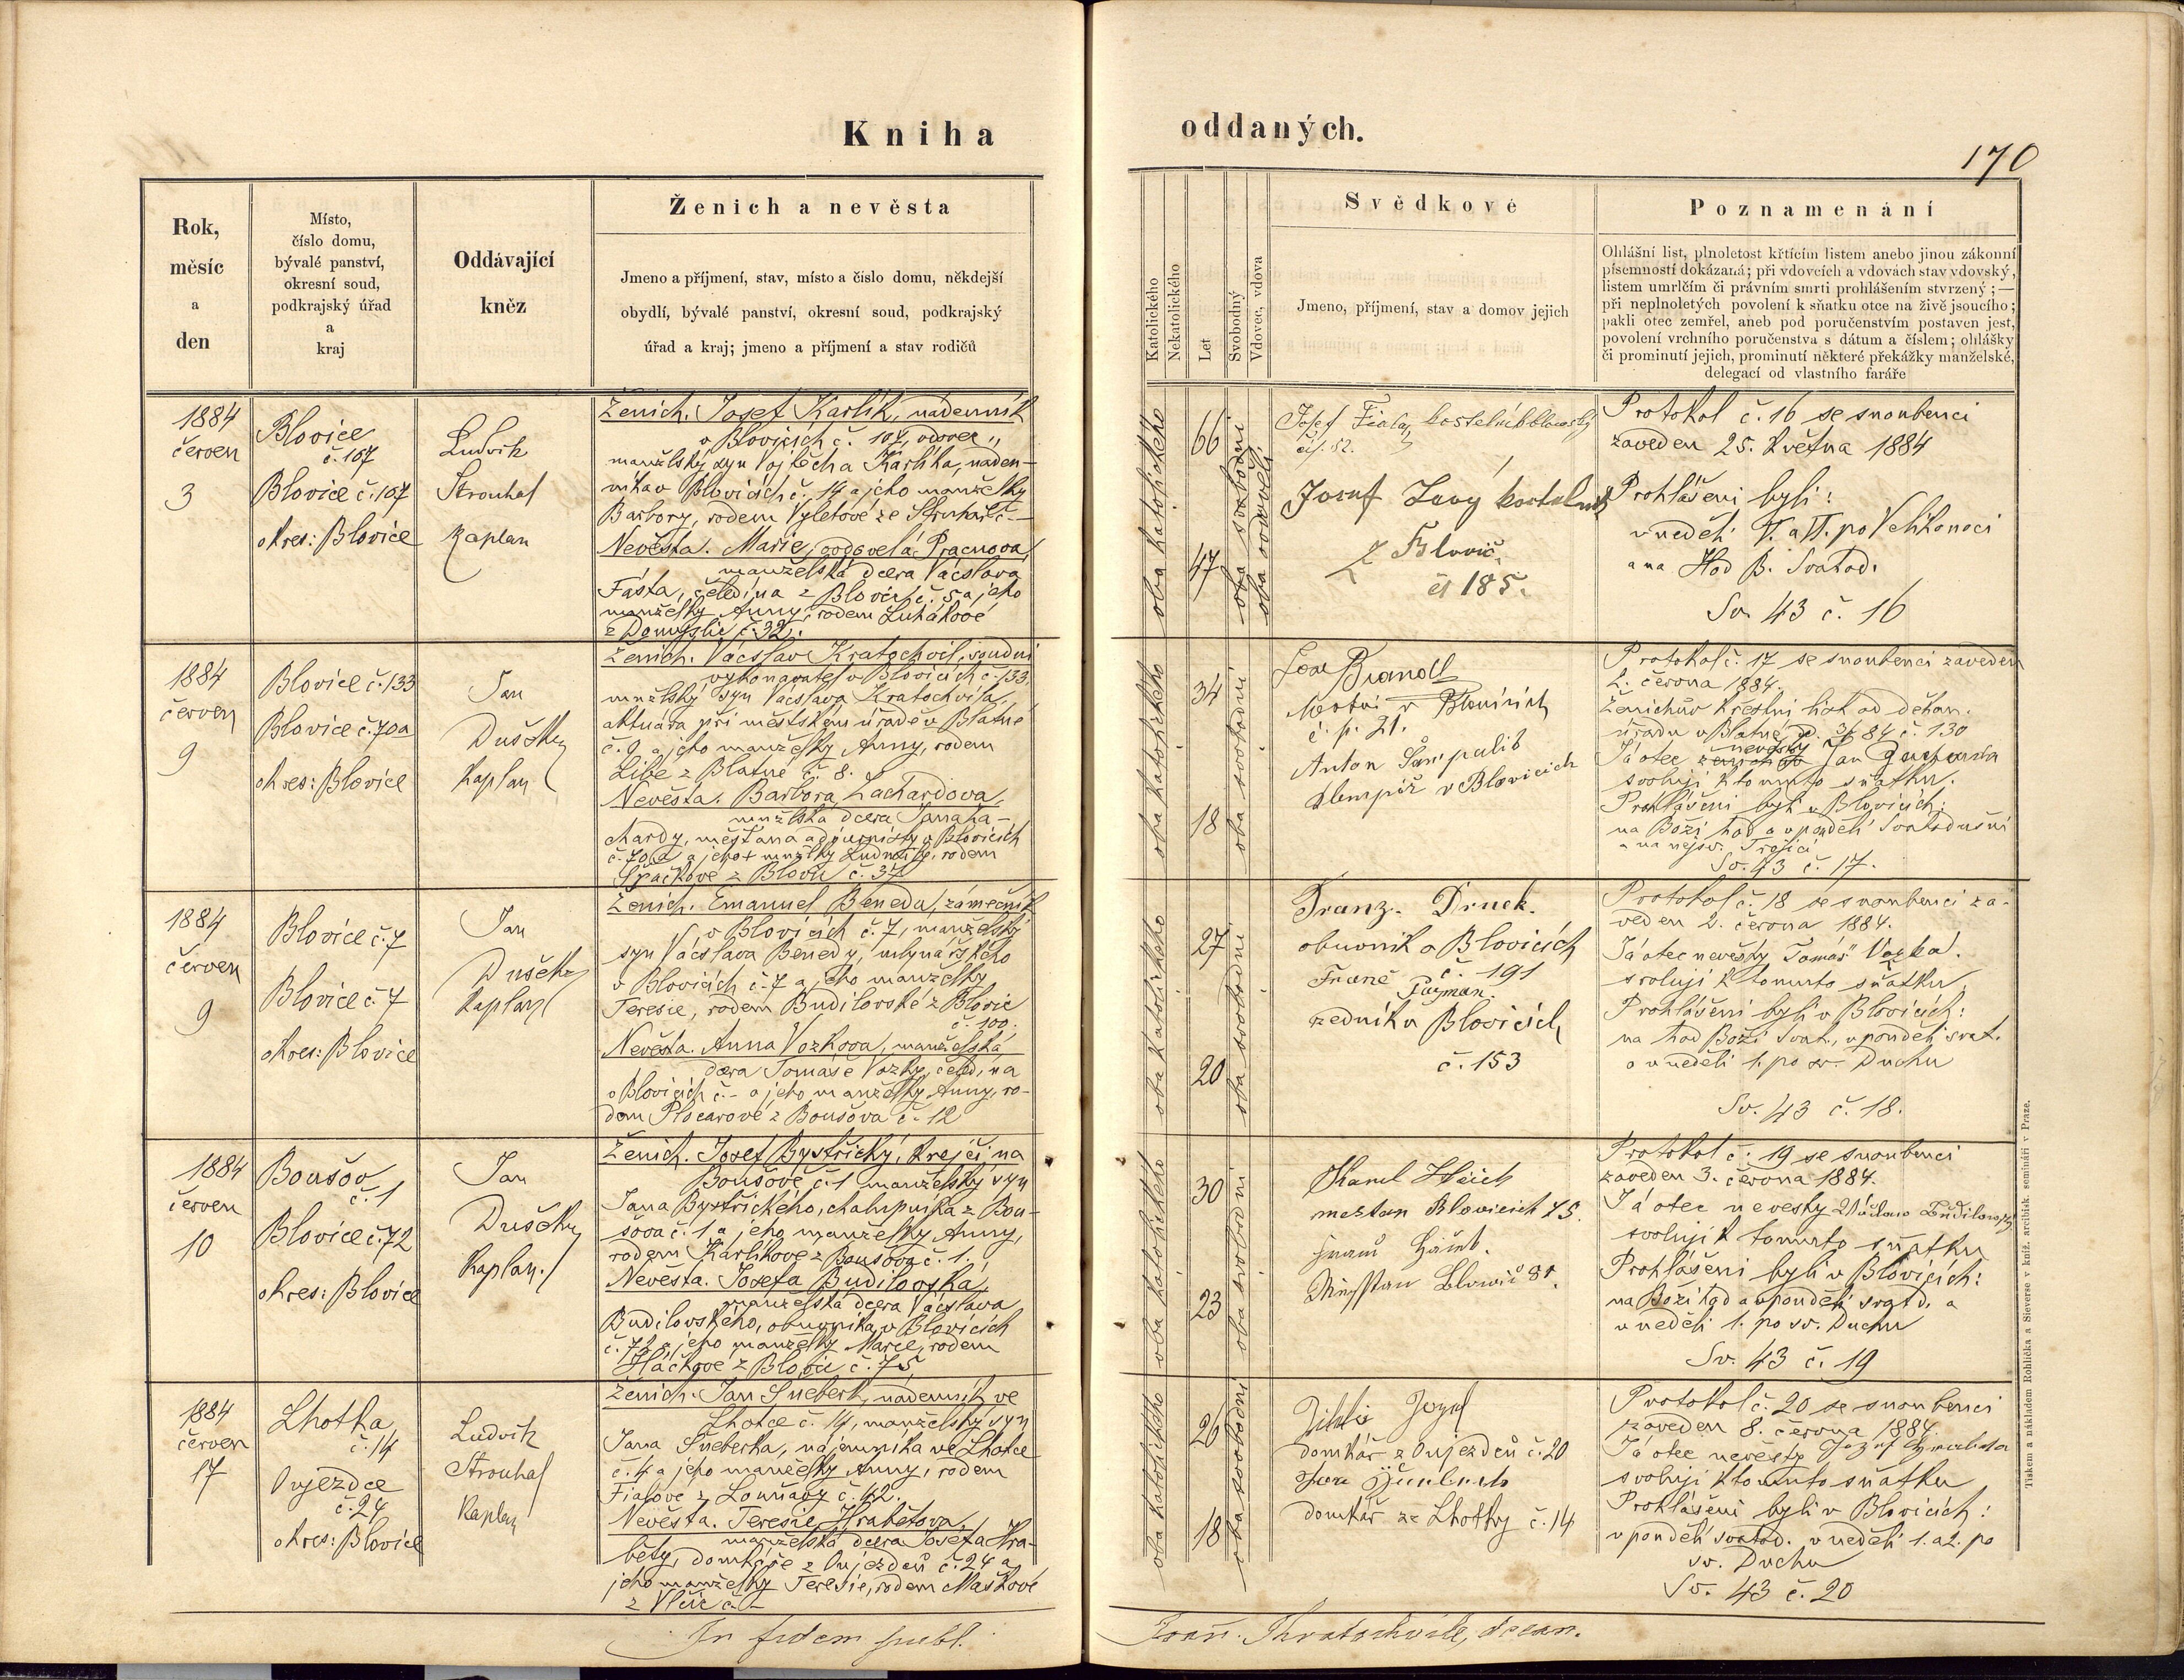 Kniha oddaných.
170
Rok,
měsíc
a
den
Místo,
číslo domu,
bývalé panství,
okresní soud,
podkrajský úřad
a
kraj
Oddávající
kněz
Ženich a nevěsta
Jmeno a příjmení, stav, místo a číslo domu, někdejší
obydlí, bývalé panství, okresní soud, podkrajský
úřad a kraj; jmeno a příjmení a stav rodičů
Katolického
Nekatolického
Let
Svobodný
Vdovec, vdova
Svědkové
Jmeno, příjmení, stav a domov jejich
Poznamenání
Ohlášní list, plnoletost křtícím listem anebo jinou zákonní
písemností dokázaná; při vdovcích a vdovách stav vdovský,
listem umrlčím či právním smrti prohlášením stvrzený; —
při neplnoletých povolení k sňatku otce na živě jsoucího;
pakli otec zemřel, aneb pod poručenstvím postaven jest,
povolení vrchního poručenstva s dátum a číslem; ohlášky
či prominutí jejich, prominutí některé překážky manželské,
delegací od vlastního faráře
1884
červen
3
Blovice
č. 107
Blovice č. 107
okres: Blovice
Ludvík
Strouhal
Kaplan
Ženich. Josef Karlík, nádenník
v Blovicích č. 107, vdovec,
manželský syn Vojtěcha Karlíka, náden-
níka v Blovicích č. 14 a jeho manželky
Barbory, rodem Výletové ze Struhař č. —
Nevěsta. Marie, ovdovělá Pracnová,
manželská dcera Vácslava
Fásta, čeledína z Blovic č. 5 a jeho
manželky Anny, rodem Luhákové
z Domyslic č. 32.
oba katolického
66
47
oba svobodní
oba ovdovělí
Josef Fiala, kostelník blovický
čís. 52.
Josef Levý kostelník
z Blovic
čs 185.
Protokol č. 16 se snoubenci
zaveden 25. května 1884
Prohlášeni byli:
v neděli V. a VI. po Velikonoci
a na Hod B. Svatod.
Sv. 43 č. 16
1884
červen
9
Blovice č. 133
Blovice č. 70a
okres: Blovice
Jan
Dušek
Kaplan
Ženich. Vácslav Kratochvil, soudní
vykonavatel v Blovicích č. 133,
manželský syn Vácslava Kratochvila,
aktuára při městském úřadě v Blatné
č. 9 a jeho manželky Anny, rodem
z Blatné č. 8.
Nevěsta. Barbora Zachardova,
manželská dcera Jana Za-
chardy, měšťana a v Blovicích
č. 70a a jeho manželky Ludmily, rodem
Špačkové z Blovic č. 37
oba katolického
34
18
oba svobodní
Brandl
v Blovicích
č. p. 21.
Anton
v Blovicích
Protokol č. 17 se snoubenci zaveden
2. června 1884.
Ženichův křestní list od děkan.
úřadu v Blatné d. 3/6 84 č. 130
Já otec nevěsty Jan
svoluji k tomuto sňatku.
Prohlášeni byli v Blovicích:
na Boží hod a v pondělí Svatodušní
a na nejsv. Trojici
Sv. 43 č. 17.
1884
červen
9
Blovice č. 7
Blovice č. 7
okres: Blovice
Jan
Dušek
Kaplan
Ženich. Emanuel Beneda, zámečník
v Blovicích č. 7, manželský
syn Vácslava Benedy, mlynářského
v Blovicích č. 7 a jeho manželky
Teresie, rodem Budilovské z Blovic
č. 100.
Nevěsta. Anna Vozkova, manželská
dcera Tomáše Vozky, čeledína
v Blovicích č. – a jeho manželky Anny, ro-
dem Plocarové z Boušova č. 12
oba katolického
27
20
oba svobodní
Franz Druck.
obuvník v Blovicích
č. 191
Franc
Pajman
zedník v Blovicích
č. 153
Protokol č. 18 se snoubenci za-
veden 2. června 1884.
Já otec nevěsty Tomáš Vozka.
svoluji k tomuto sňatku.
Prohlášeni byli v Blovicích:
na hod Boží Svat., v pondělí svat.
a v neděli 1. po sv. Duchu
Sv. 43 č. 18.
1884
červen
10
Boušov
č. 1
Blovice č. 72
okres: Blovice
Jan
Dušek
Kaplan.
Ženich. Josef Bystřický, krejčí na
Boušově č. 1 manželský syn
Jana Bystřického, chalupníka z Bou-
šova č. 1 a jeho manželky Anny,
rodem Karlíkové z Boušova č. 1,
Nevěsta. Josefa Budilovská,
manželská dcera Vácslava
Budilovského, obuvníka v Blovicích
č. 72 a jeho manželky Marie, rodem
Háčkové z Blovic č. 75
oba katolického
30
23
oba svobodní
Karel
mesťan Blovicich 75.
Blowic 81.
Protokol č. 19 se snoubenci
zaveden 3. června 1884.
Já otec nevesty Václav Budilovský
svoluji k tomuto sňatku
Prohlášeni byli v Blovicích:
na Boží hod a v pondělí svatd. a
v neděli 1. po sv. Duchu
Sv. 43 č. 19
1884
červen
17
Lhotka
č. 14
Oujezdce
č. 24
okres: Blovice
Ludvík
Strouhal
Kaplan
Ženich. Jan Šneberk, nádenník ve
Lhotce č. 14, manželský syn
Jana Šneberka, nájemníka ve Lhotce
č. 4 a jeho manželky Anny, rodem
Fialové z č. 42.
Nevěsta. Teresie Hrabětova,
manželská dcera Josefa Hra-
běty, domkáře z Oujezdců č. 24 a
jeho manželky Teresie, rodem Maškové
z Vlčic č. –
oba katolického
26
18
oba svobodní
Josef
domkář z Oujezdců č. 20
domkář ze Lhotky č. 14
Protokol č. 20 se snoubenci
zaveden 8. června 1884.
Já otec nevěsty Jozef
svoluji k tomuto sňatku
Prohlášeni byli v Blovicích:
v pondělí svatod. v neděli 1. a 2. po
sv. Duchu
Sv. 43 č. 20
In fidem publ. Joan. Kratochvile, decan.
Tiskem a nákladem Rohlíčka a Sieverse v kníž. arcibisk. semináři v Praze.